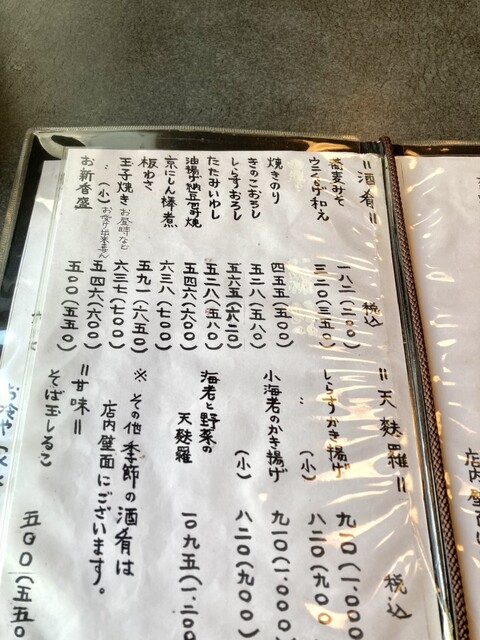 =酒肴= 税込
蕎麦みそ 一八二(二〇〇)
ウニくらげ和え 三二〇(三五〇)
焼きのり 四五五(五〇〇)
きのこおろし 五二八(五八〇)
しらすおろし 五六五(六二〇)
たたみいわし 五二八(五八〇)
油揚げ納豆包み焼 五四六(六〇〇)
京にしん棒煮 六三八(七〇〇)
板わさ 五九一(六五〇)
玉子焼き お昼時など 六三七(七〇〇)
(小) お受け出来ません 五四六(六〇〇)
お新香盛 五〇〇(五五〇)
=天麩羅= 税込
しらすかき揚げ 九一〇(一.〇〇〇
(小) 八二〇(九〇〇
小海老のかき揚げ 九一〇(一.〇〇〇
(小) 八二〇(九〇〇)
海老と野菜の
天麩羅 一〇九五(一.二〇〇
※その他季節の酒肴は
店内壁面にございます。
=甘味=
そば玉しるこ 五〇〇(五五〇
店内壁面